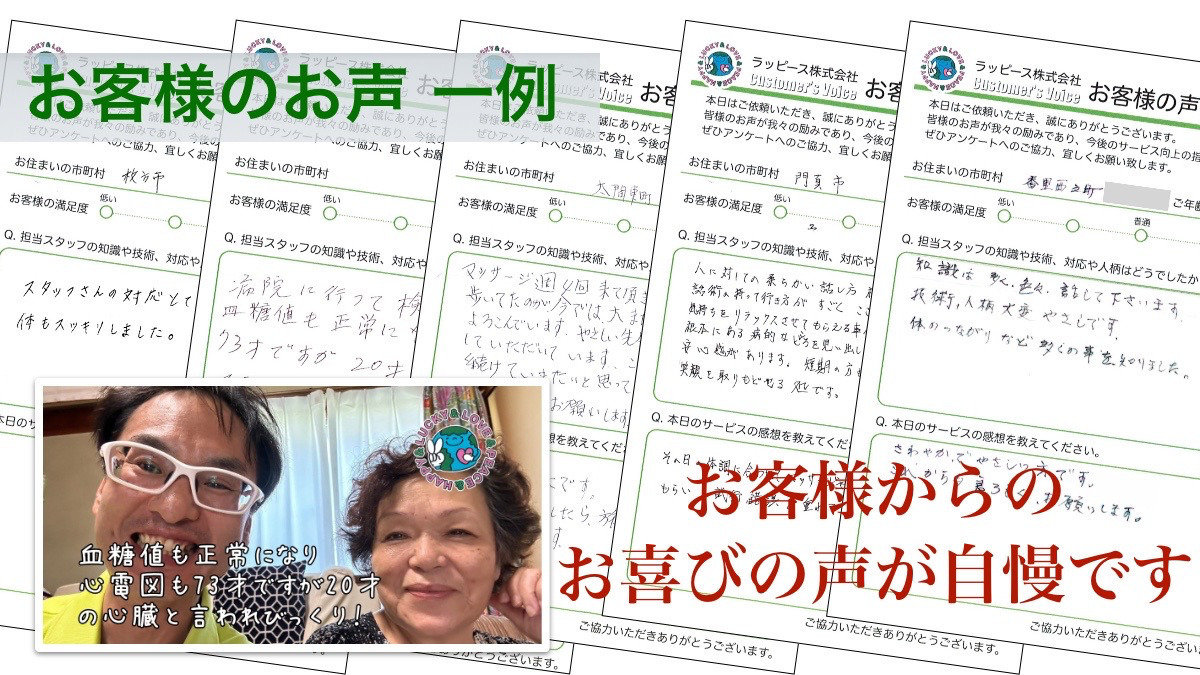 お客様のお声 一例
ラッピース株式会社
お住まいの市町村 枚方市
お客様の満足度 低い
Q. 担当スタッフの知識や技術、対応や
スタッフさんの対応とて
体もスッキリしました。
お住まいの市町村
お客様の満足度 低い
Q. 担当スタッフの知識や技術、対応や
病院に行って検
血糖値も正常に
73才ですが 20才
ラッピース株式会社
お住まいの市町村 太間東町
お客様の満足度 低い
Q. 担当スタッフの知識や技術、対応や
マッサージ週4回 来て頂き
歩いてたのが今では大
よろこんでいます。やさしい先
していただいています。こ
続けていきたいと思って
お願いします
ラッピース株式会社
Customer's Voice お客
本日はご依頼いただき、誠にありがとう
皆様のお声が我々の励みであり、今後の
ぜひアンケートへのご協力、宜しくお願
お住まいの市町村 門真市
お客様の満足度 低い
Q. 担当スタッフの知識や技術、対応や
人に対しての柔らかい話し方
気持ちをリラックスさせてもらえる事
安心感があります。短期の方も
笑顔を取りもどせる処です。
Q. 本日のサービスの感想を教えてくだ
その日の体調に合
もらい
ラッピース株式会社
Customer's Voice お客様の声
本日はご依頼いただき、誠にありがとうございます。
皆様のお声が我々の励みであり、今後のサービス向上の指
ぜひアンケートへのご協力、宜しくお願い致します。
お住まいの市町村 香里西之町 ご年齢
お客様の満足度 低い 普通
Q. 担当スタッフの知識や技術、対応や人柄はどうでしたか
知識は多く、色々、話して下さいます。
技術、人柄 大変 やさしです。
体のつながりなど多くの事を知りました。
Q. 本日のサービスの感想を教えてください。
さわやかでやさしい方です。
これからも 宜ろしく お願いします。
HAPPY&LUCKY&LOVE&PEACE&
血糖値も正常になり
心電図も73才ですが20才
の心臓と言われびっくり!
お客様からの
お喜びの声が自慢です
とうございます。
ご協力いただきありがとうございます。
ご協力いただきありがとうございます。
ご協力いただきありがとうございます。